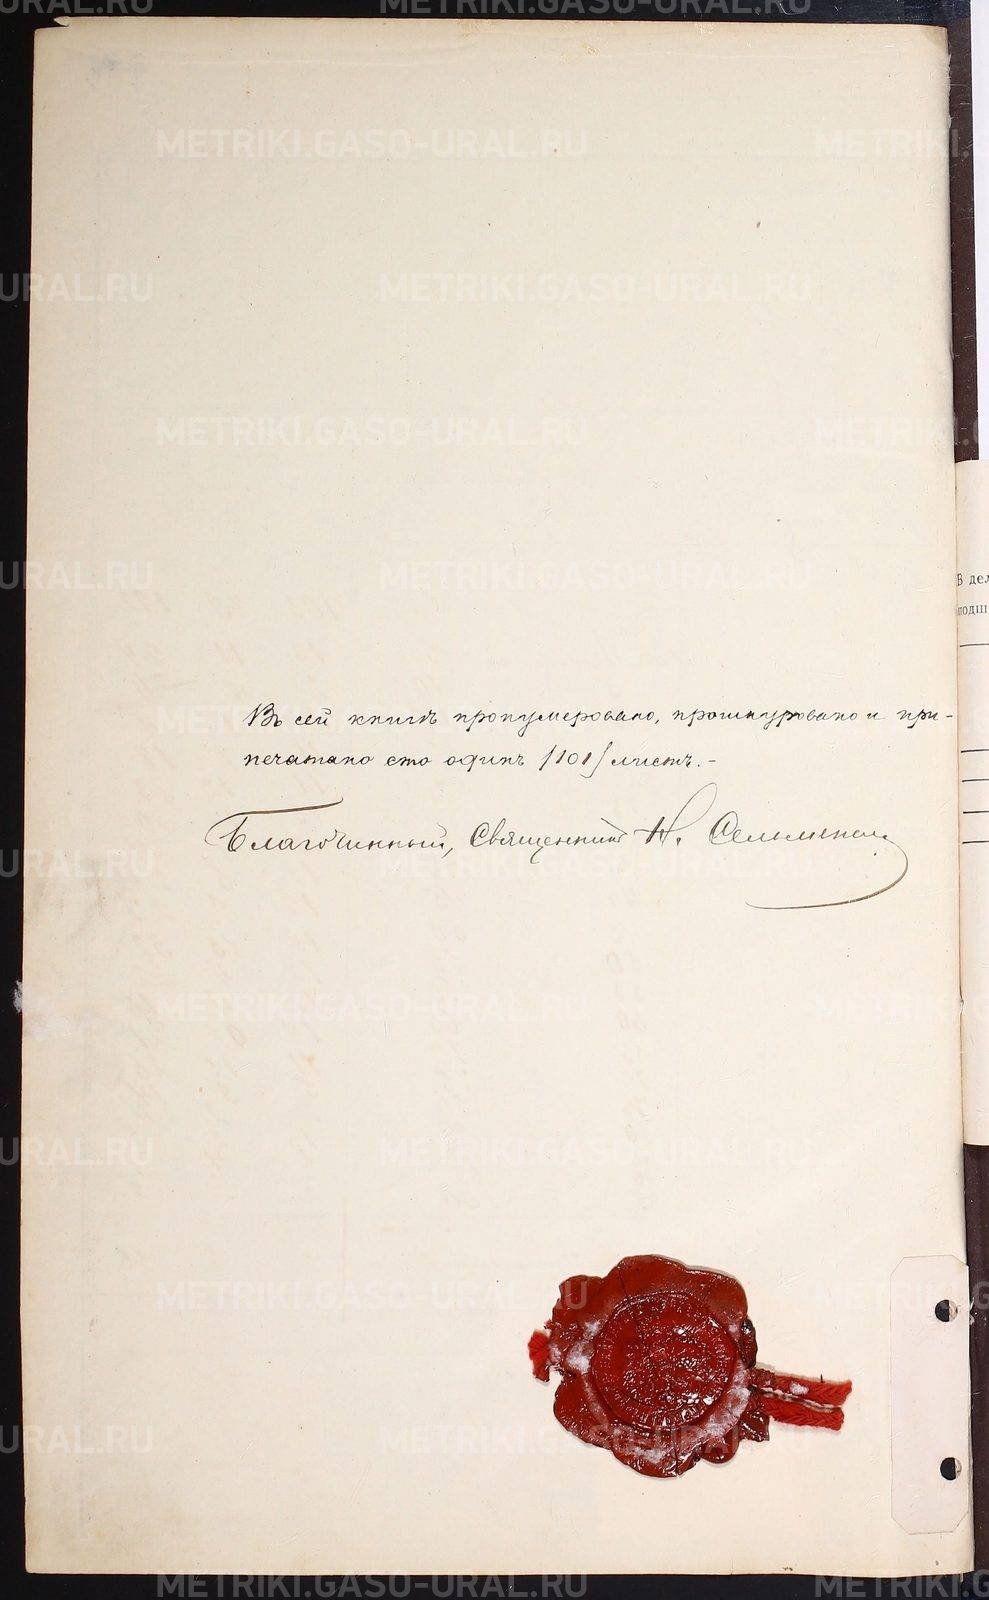 METRIKI.GASO-URAL.RU
Въ сей книгѣ пронумеровано, прошнуровано и при-
печатано сто одинъ /101/ листъ.-
Благочинный, Священникъ
В дел
подш